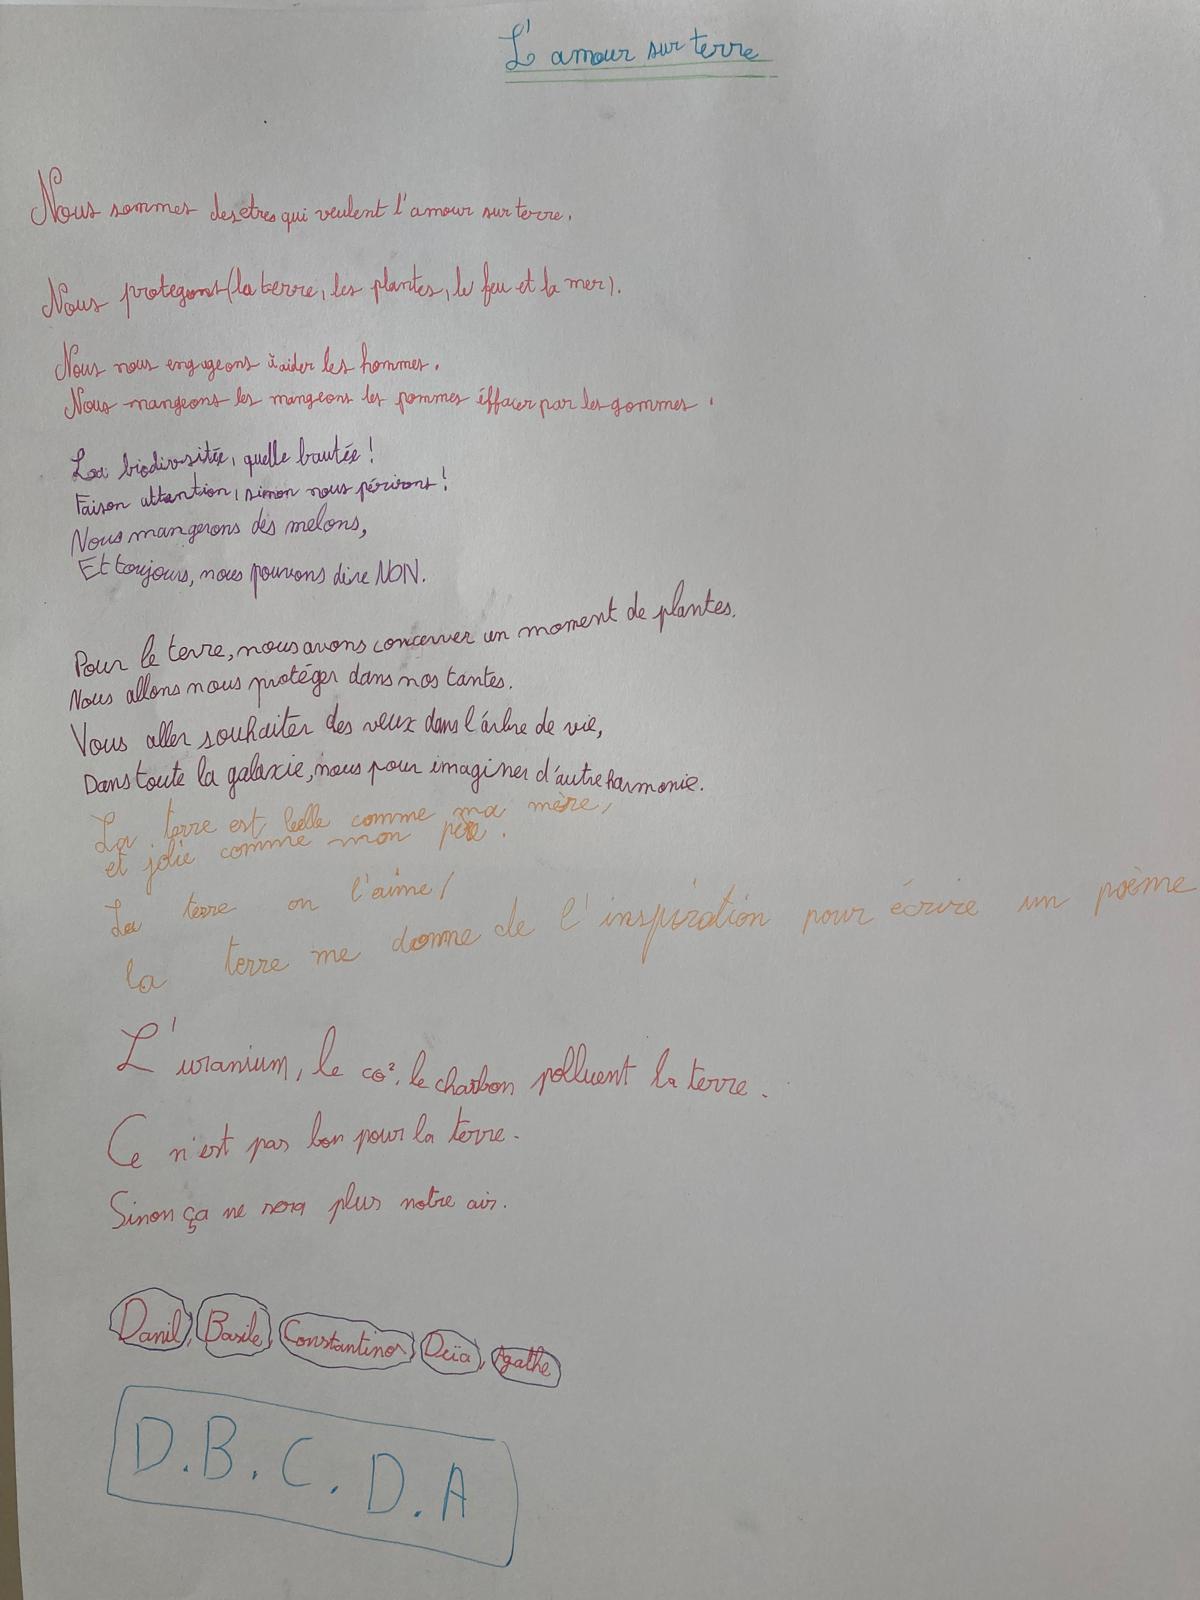 L'amour sur terre
Nous sommes des etres qui veulent l'amour sur terre.
Nous protegons (la terre, les plantes, le feu et la mer).
Nous nous engageons à aider les hommes.
Nous mangeons les mangeons les pommes éffacer par les gommes.
La biodiversitée, quelle bautée!
Faison attantion, simon nous périrons!
Nous mangerons des melons,
Et toujours, nous pouvons dire NON.
Pour le terre, nous avons concerver un moment de plantes.
Nous allons nous protéger dans nos tantes.
Vous aller souhaiter des veux dans l'árbre de vie,
Dans toute la galaxie, nous pour imaginer d'autre harmonie.
La terre est belle comme ma mère,
et jolie comme mon père.
La terre on l'aime,
la terre me donne de l'inspiration pour écrire un poème
L'uranium, le co², le charbon polluent la terre.
Ce n'est pas bon pour la terre.
Sinon ça ne sera plus notre air.
Danil, Basile, Constantinos, Deïa, Agathe
D.B.C.D.A